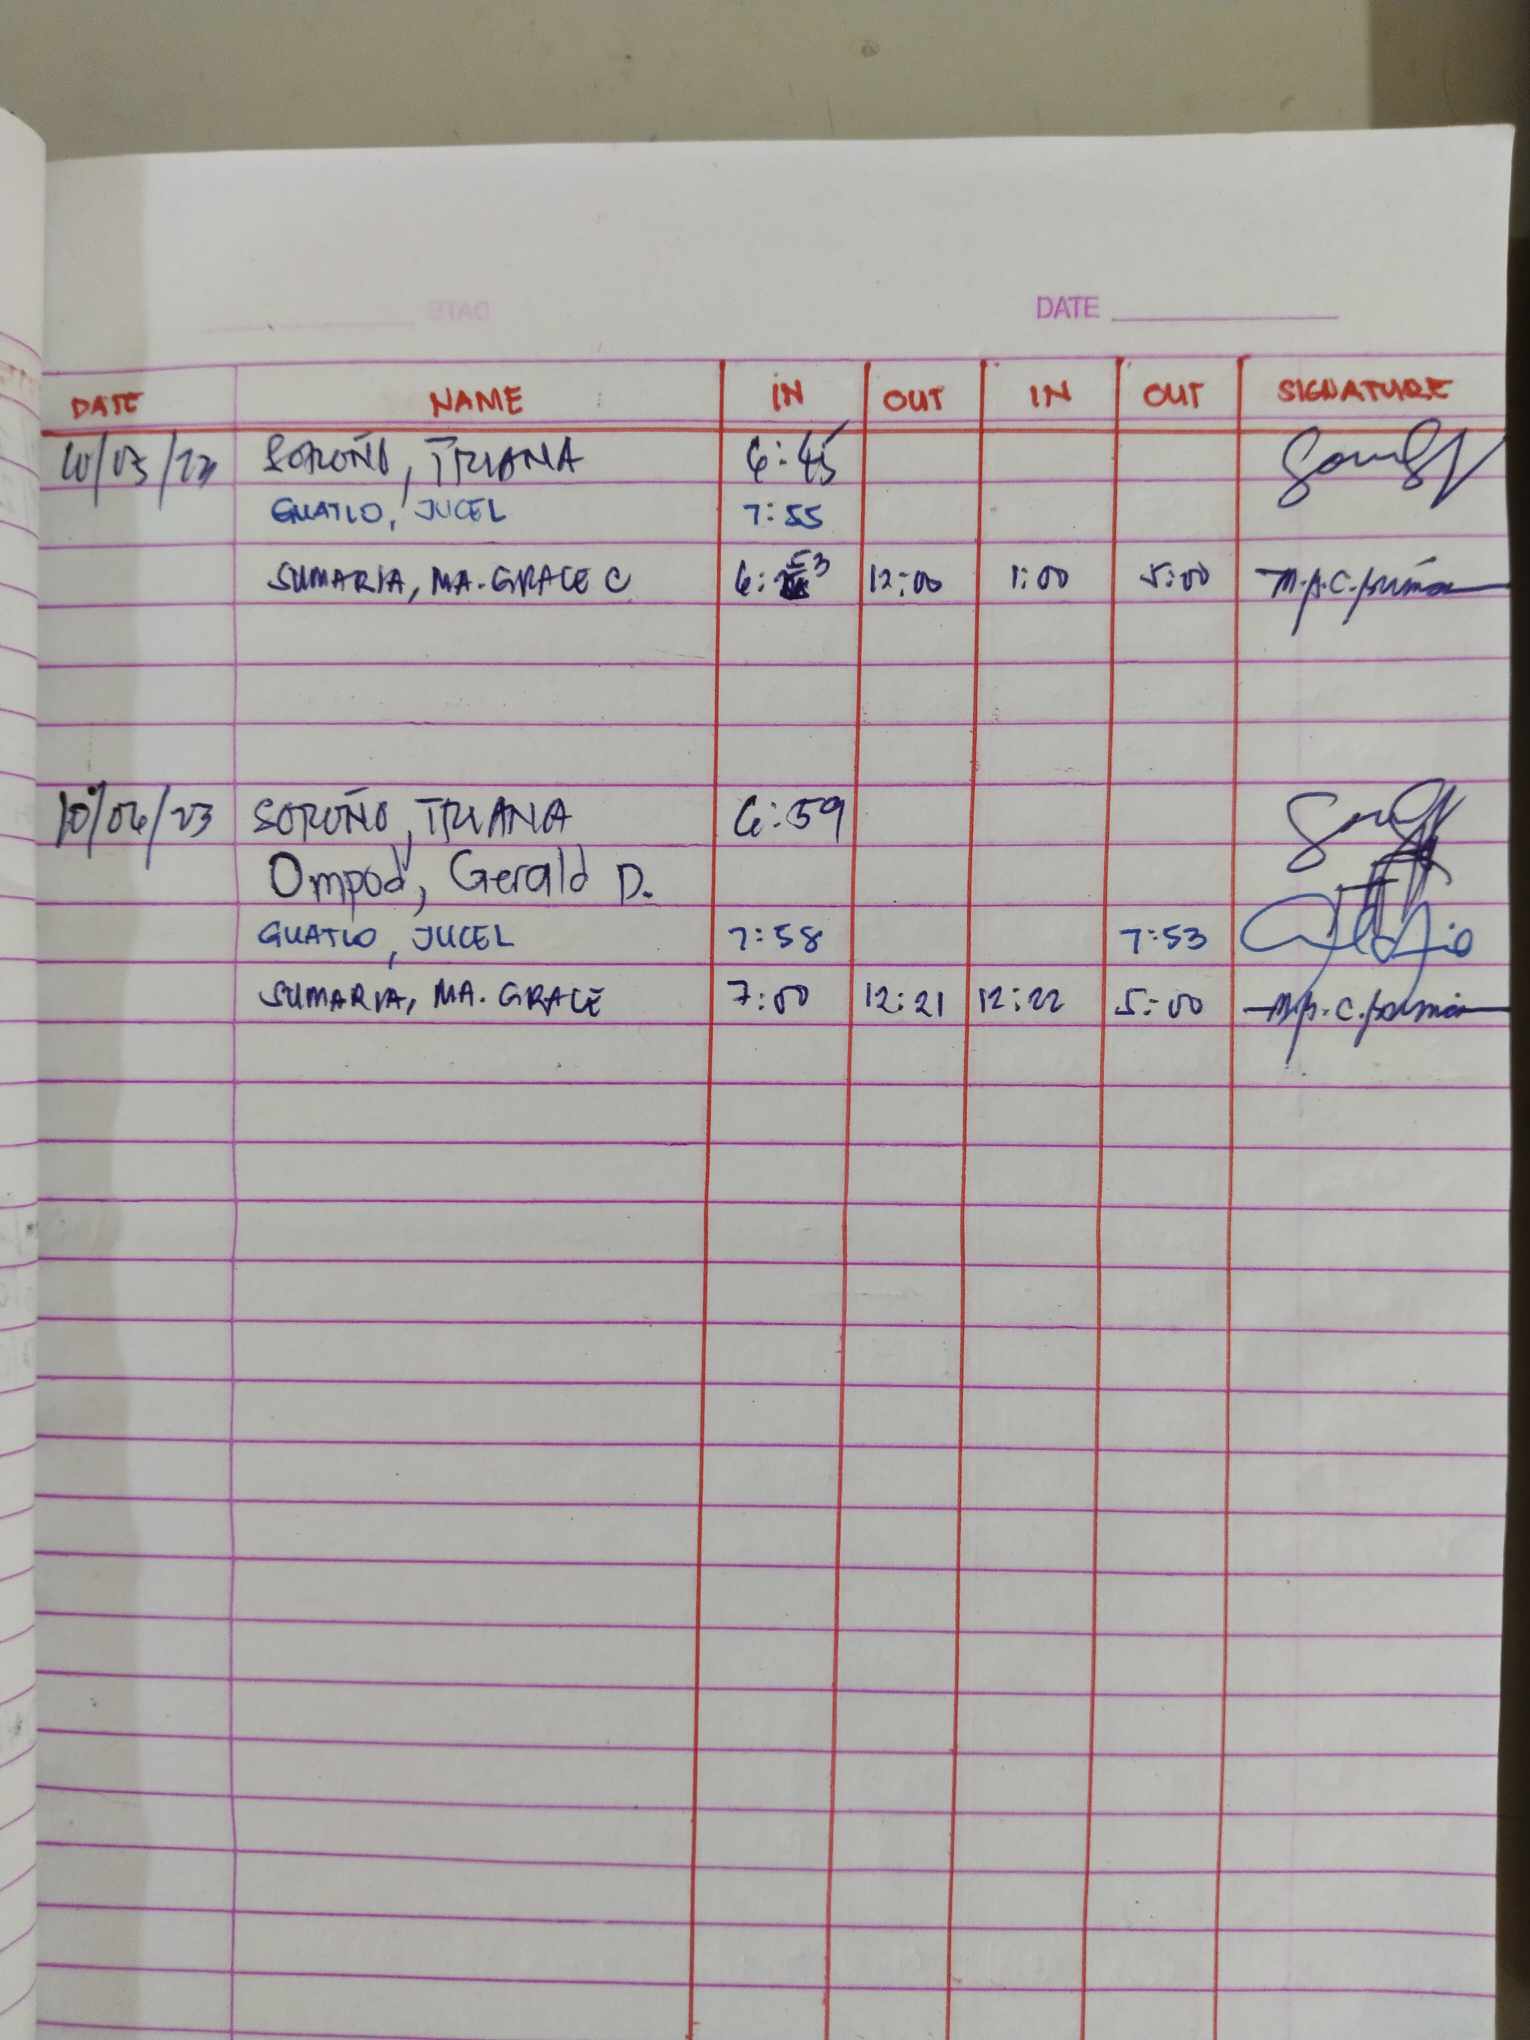 DATE
DATE NAME IN OUT IN OUT SIGNATURE
10/03/23 SOROÑO, TRIANA 6:45
GUATLO, JUCEL 7:55
SUMARIA, MA. GRACE C 6:53 12:00 1:00 5:00
10/04/23 SOROÑO, TRIANA 6:59
Ompod, Gerald D.
GUATLO, JUCEL 7:58 7:53
SUMARIA, MA. GRACE 7:00 12:21 12:22 5:00